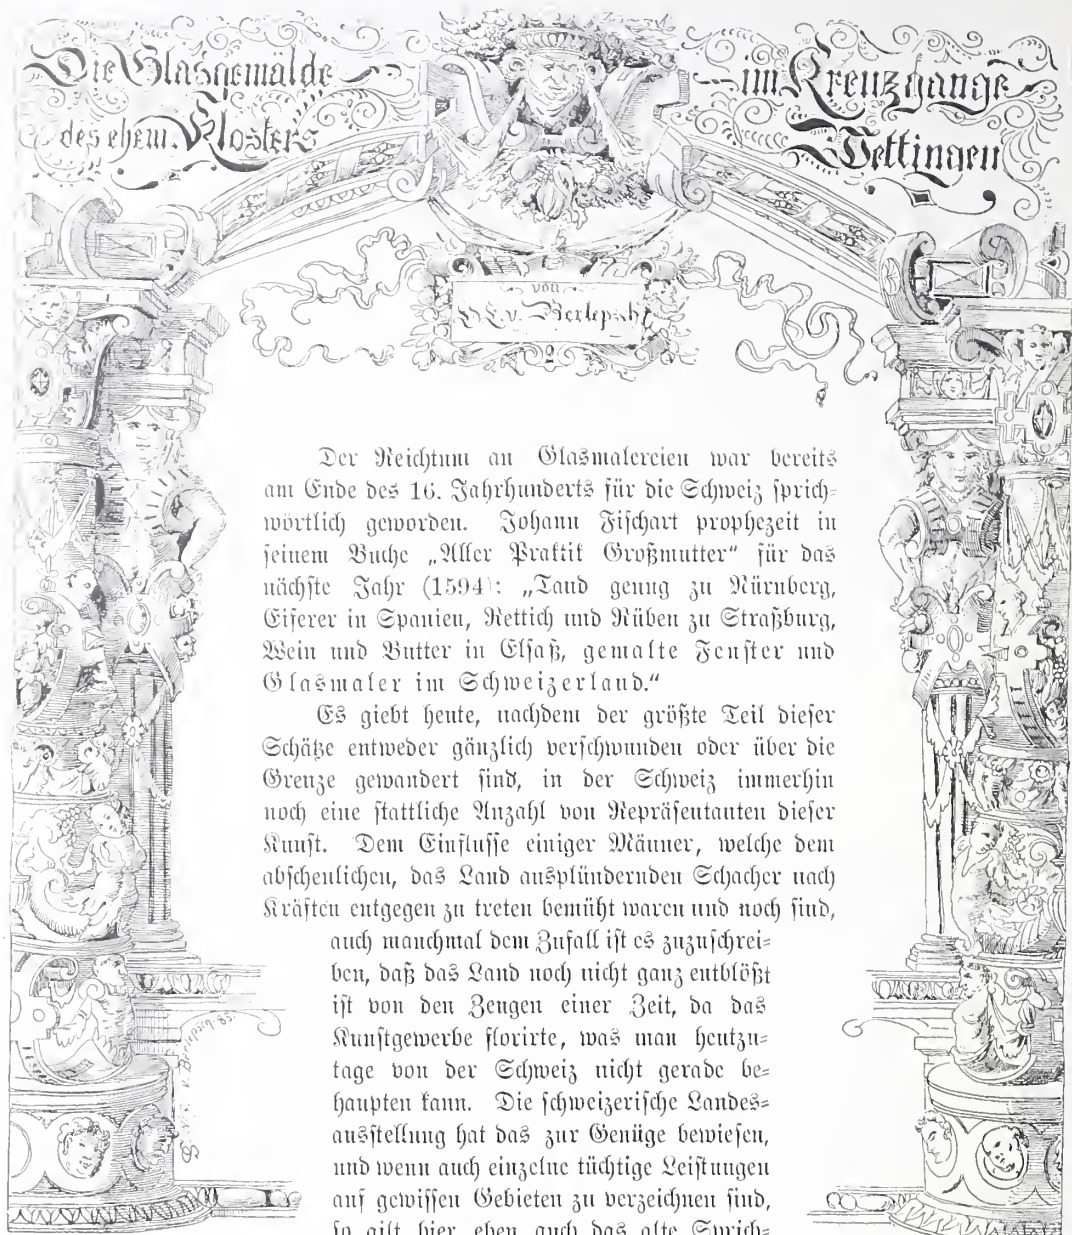 Die Glasgemälde
des ehem. Klosters
im Kreuzgange
Wettingen
von
H. E. v. Berlepsch
Der Reichtum an Glasmalereien war bereits
am Ende des 16. Jahrhunderts für die Schweiz sprich-
wörtlich geworden. Johann Fischart prophezeit in
seinem Buche „Aller Praktik Großmutter“ für das
nächste Jahr (1594): „Tand genug zu Nürnberg,
Eiferer in Spanien, Rettich und Rüben zu Straßburg,
Wein und Butter in Elsaß, gemalte Fenster und
Glasmaler im Schweizerland.“
Es giebt heute, nachdem der größte Teil dieser
Schätze entweder gänzlich verschwunden oder über die
Grenze gewandert sind, in der Schweiz immerhin
noch eine stattliche Anzahl von Repräsentanten dieser
Kunst. Dem Einflusse einiger Männer, welche dem
abscheulichen, das Land ausplündernden Schacher nach
Kräften entgegen zu treten bemüht waren und noch sind,
auch manchmal dem Zufall ist es zuzuschrei-
ben, daß das Land noch nicht ganz entblößt
ist von den Zeugen einer Zeit, da das
Kunstgewerbe florirte, was man heutzu-
tage von der Schweiz nicht gerade be-
haupten kann. Die schweizerische Landes-
ausstellung hat das zur Genüge bewiesen,
und wenn auch einzelne tüchtige Leistungen
auf gewissen Gebieten zu verzeichnen sind,
so gilt hier eben auch das alte Sprich-
v. Berlepsch 83.